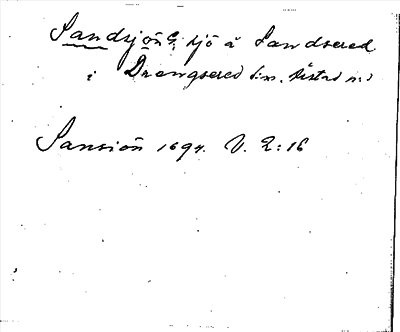 Sandsjön G. sjö å Sandsered
i Drengsered s:n. Västad n:o
Sansiön 1694. V. 2:16